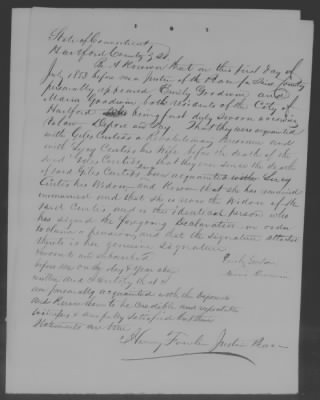 State of Connecticut
Hartford County } SS.
Be it Known that on this first day of
July 1853 before me a Justice of the Peace for Said County
personally appeared Emily Goodwin and
Maria Goodwin both residents of the City of
Hartford being first duly Sworn according
to law Depose and Say That they were acquainted
with Giles Curtiss a Revolutionary Pensioner and
with Lucy Curtiss his Wife before the death of the
said Giles Curtiss and that they ever since the death
of said Giles Curtiss been acquainted with Lucy
Curtiss his Widow and Know that she has remained
unmarried and that she is now the Widow of the
said Curtiss and is the Identical person who
has signed the foregoing Declaration in order
to obtain a pension, and that the signature attached
thereto is her genuine signature
Sworn to and subscribed
before me on the day & year above
written and I certify that I
am personally acquainted with the deponents
and Know them to be credible and reputable
witnesses & am fully satisfied that their
statements are true
Henry Justice Peace